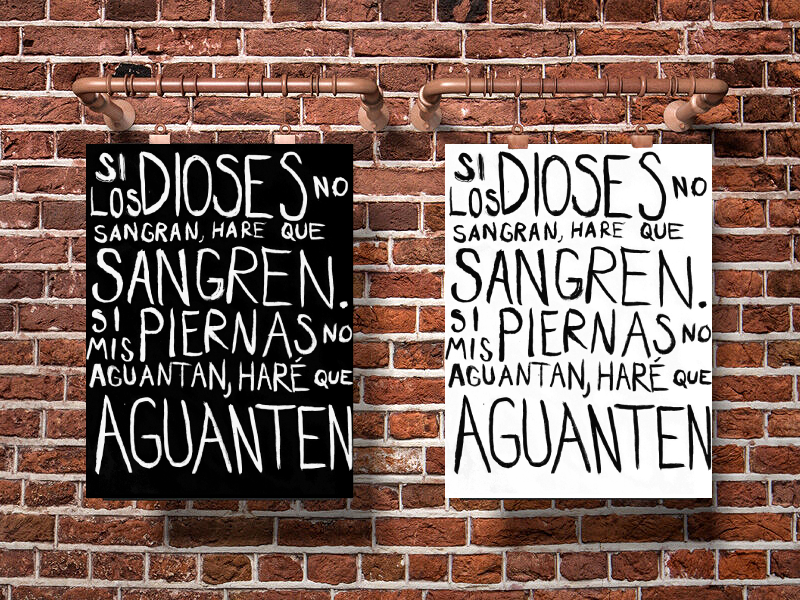 SI LOS DIOSES NO
SANGRAN, HARE QUE
SANGREN.
SI MIS PIERNAS NO
AGUANTAN, HARÉ QUE
AGUANTEN
SI LOS DIOSES NO
SANGRAN, HARE QUE
SANGREN.
SI MIS PIERNAS NO
AGUANTAN, HARÉ QUE
AGUANTEN